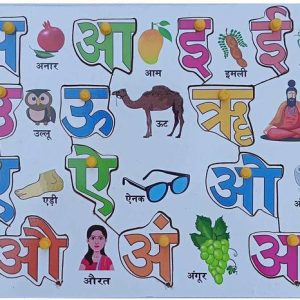 अ अनार आ आम इ इमली ई
उ उल्लू ऊ ऊट ऋ
ए एड़ी ऐ ऐनक ओ
औ औरत अं अंगूर अ